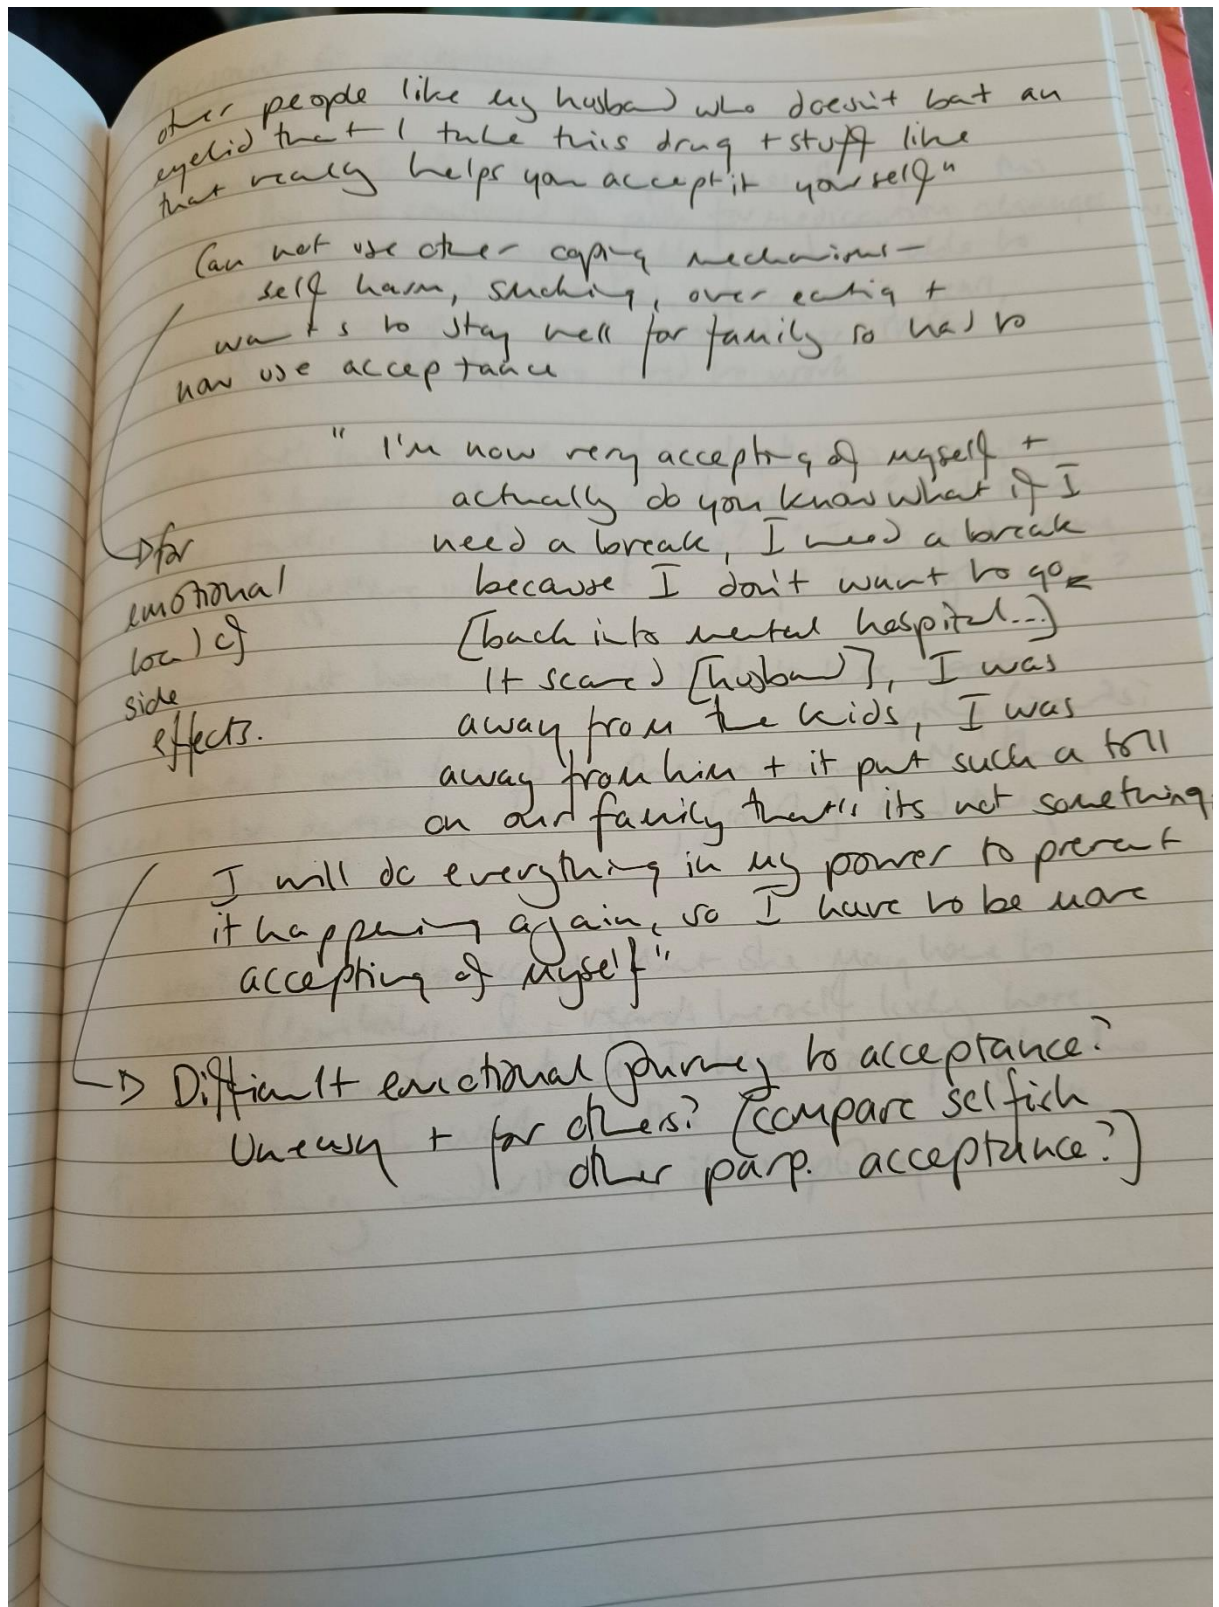 other people like my husband who doesn't bat an
eyelid that I take this drug + stuff like
that really helps you accept it yourself"
Can not use other coping mechanisms -
self harm, smoking, over eating +
wants to stay well for family so had to
now use acceptance
" I'm now very accepting of myself +
actually do you know what if I
need a break, I need a break
because I don't want to go
[back into mental hospital...]
It scared [husband], I was
away from the kids, I was
away from him + it put such a toll
on our family that's its not something
I will do everything in my power to prevent
it happening again, so I have to be more
accepting of myself"
→ for
emotional
load of
side
effects.
→ Difficult emotional journey to acceptance?
Uneasy + for others? [compare selfish
other parp. acceptance?]